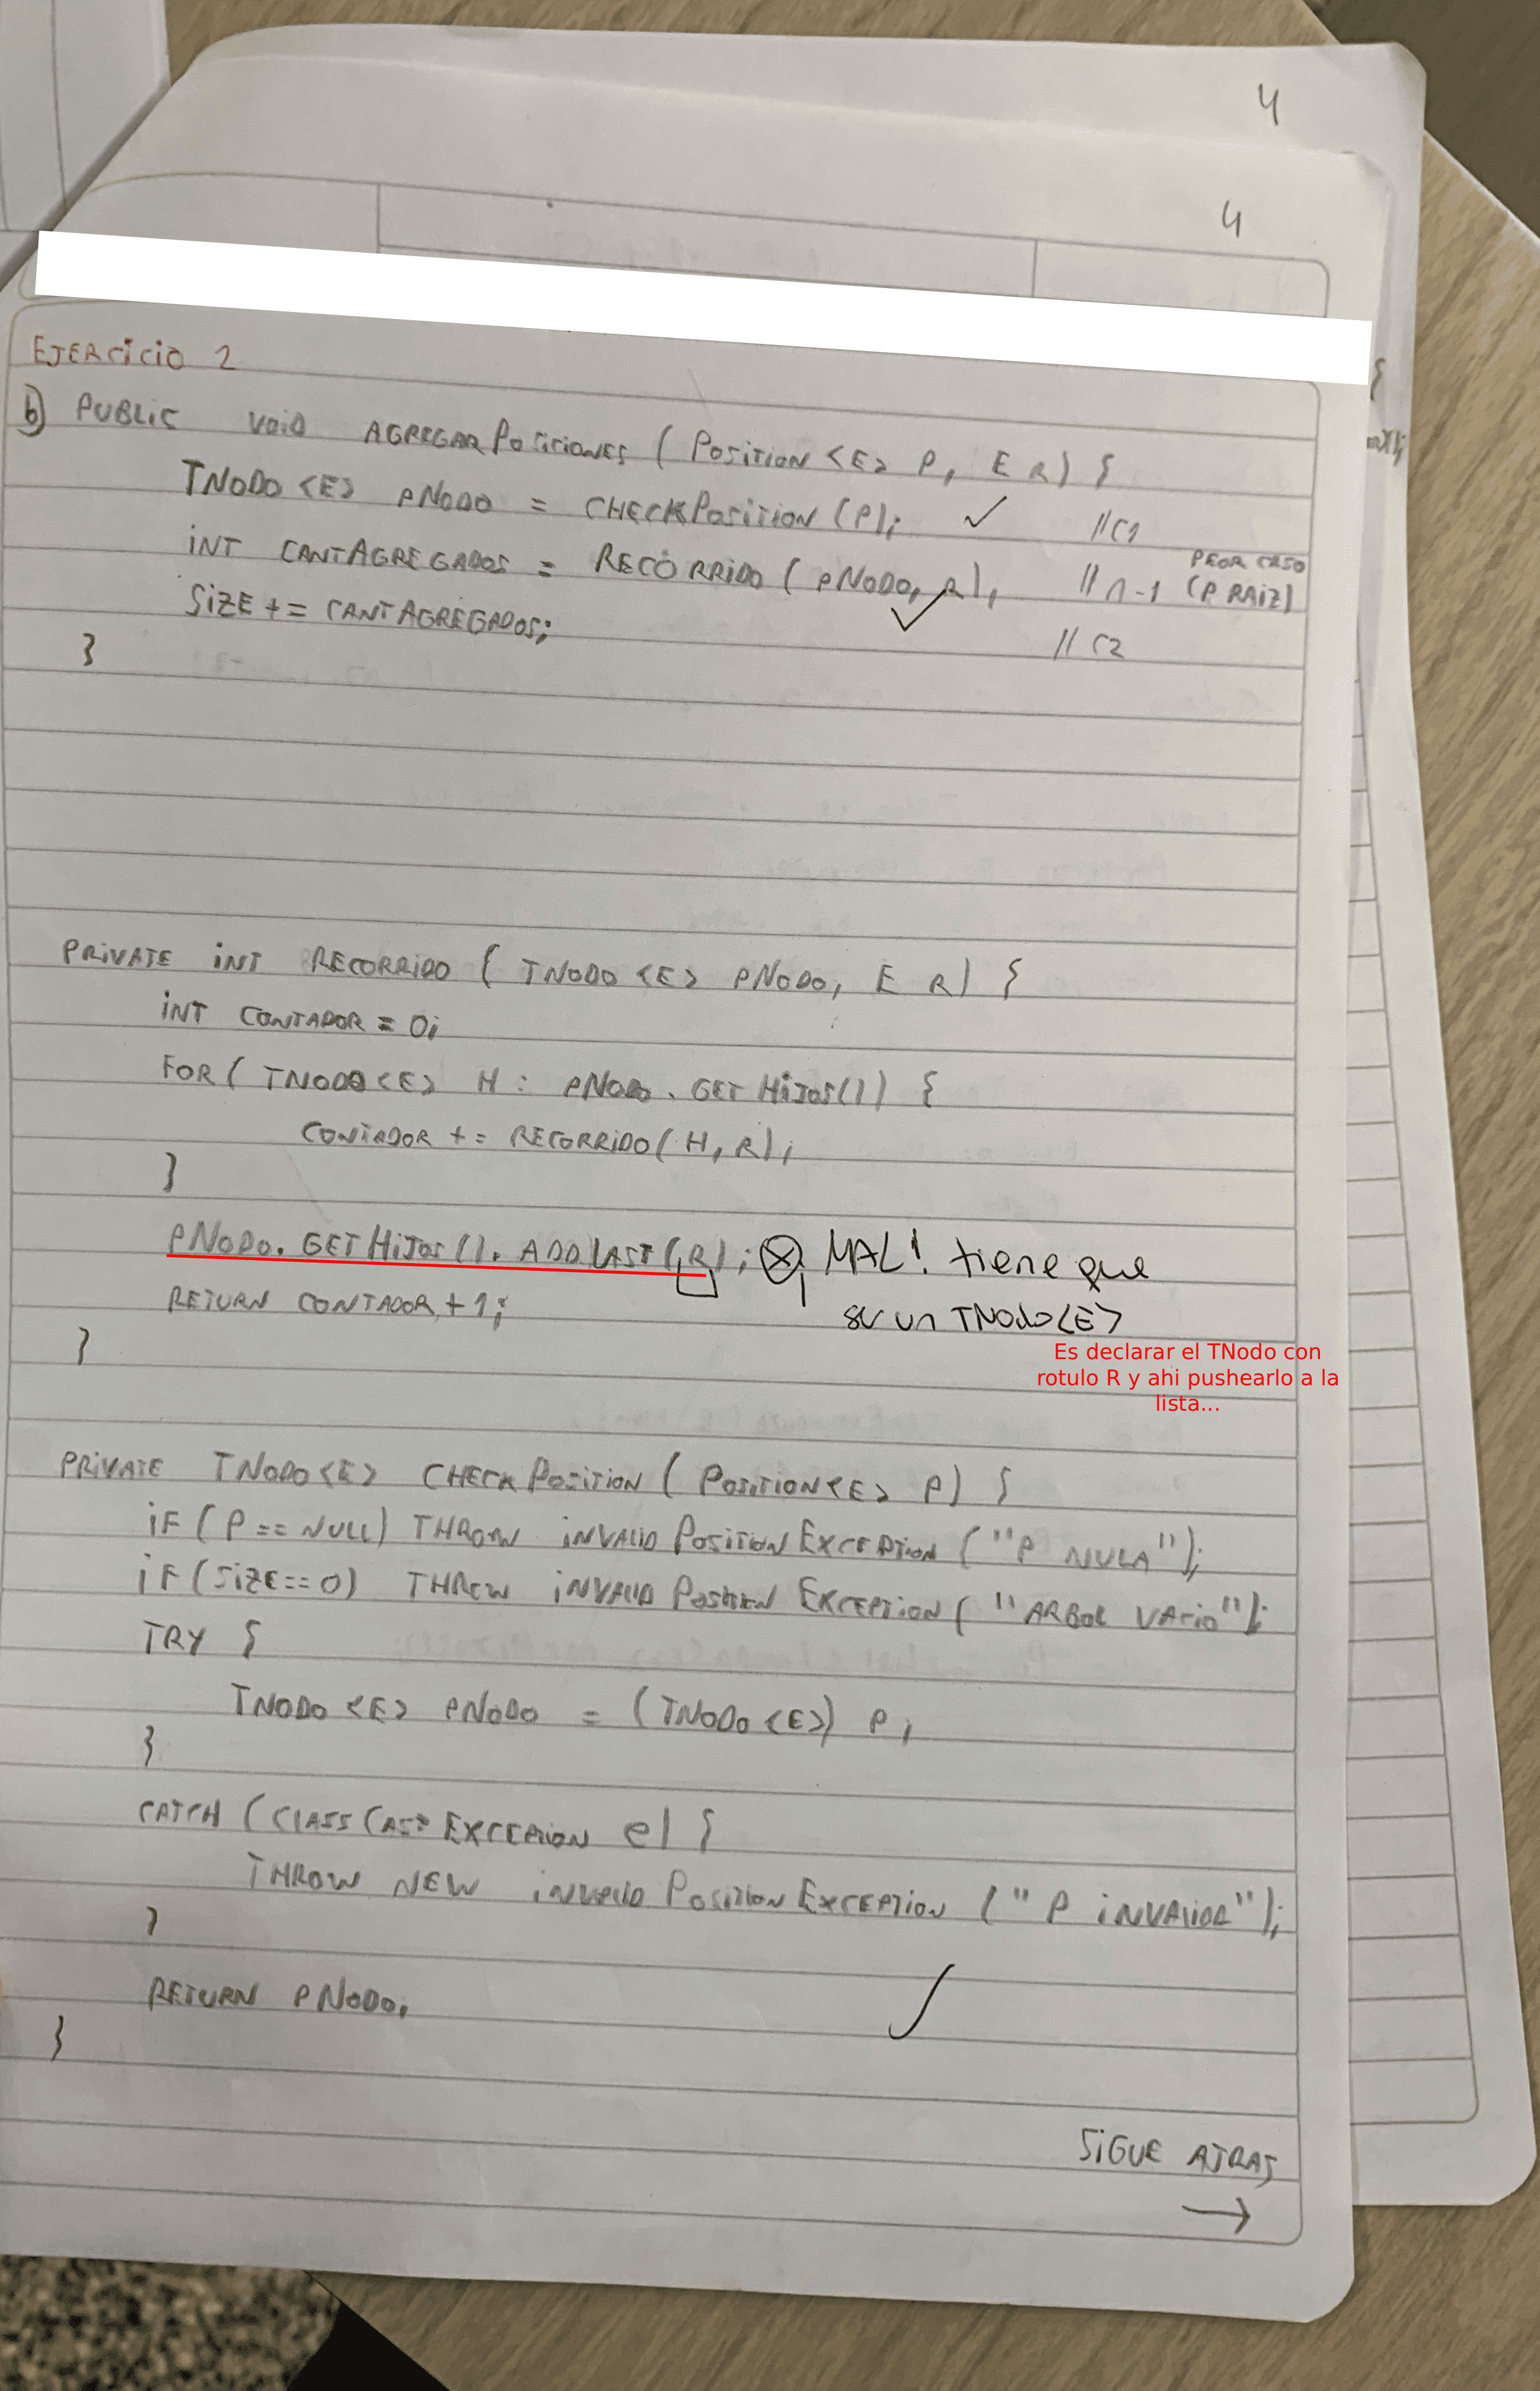 4
4
EJERCICIO 2
b) PUBLIC VOID AGREGARPOSICIONES ( POSITION <E> P, E R) {
TNODO <E> PNODO = CHECKPOSITION (P); ✓ //C1
INT CANTAGREGADOS = RECORRIDO ( PNODO, R); // n-1 (P RAIZ) PEOR CASO
SIZE += CANTAGREGADOS; ✓ // C2
}
PRIVATE INT RECORRIDO ( TNODO <E> PNODO, E R) {
INT CONTADOR = 0;
FOR ( TNODO <E> H : PNODO . GETHIJOS()) {
CONTADOR += RECORRIDO( H, R);
}
PNODO. GETHIJOS (). ADDLAST(R); ⊗ MAL! tiene que
ser un TNodo<E>
RETURN CONTADOR + 1;
}
Es declarar el TNodo con
rotulo R y ahi pushearlo a la
lista...
PRIVATE TNODO<E> CHECKPOSITION ( POSITION<E> P) {
IF ( P == NULL) THROW INVALIDPOSITIONEXCEPTION ( "P NULA");
IF (SIZE == 0) THROW INVALIDPOSITION EXCEPTION ( "ARBOL VACIO");
TRY {
TNODO <E> PNODO = (TNODO <E>) P;
}
CATCH ( CLASSCASTEXCEPTION e) {
THROW NEW INVALIDPOSITIONEXCEPTION ( " P INVALIDA");
}
RETURN PNODO;
}
SIGUE ATRAS
→